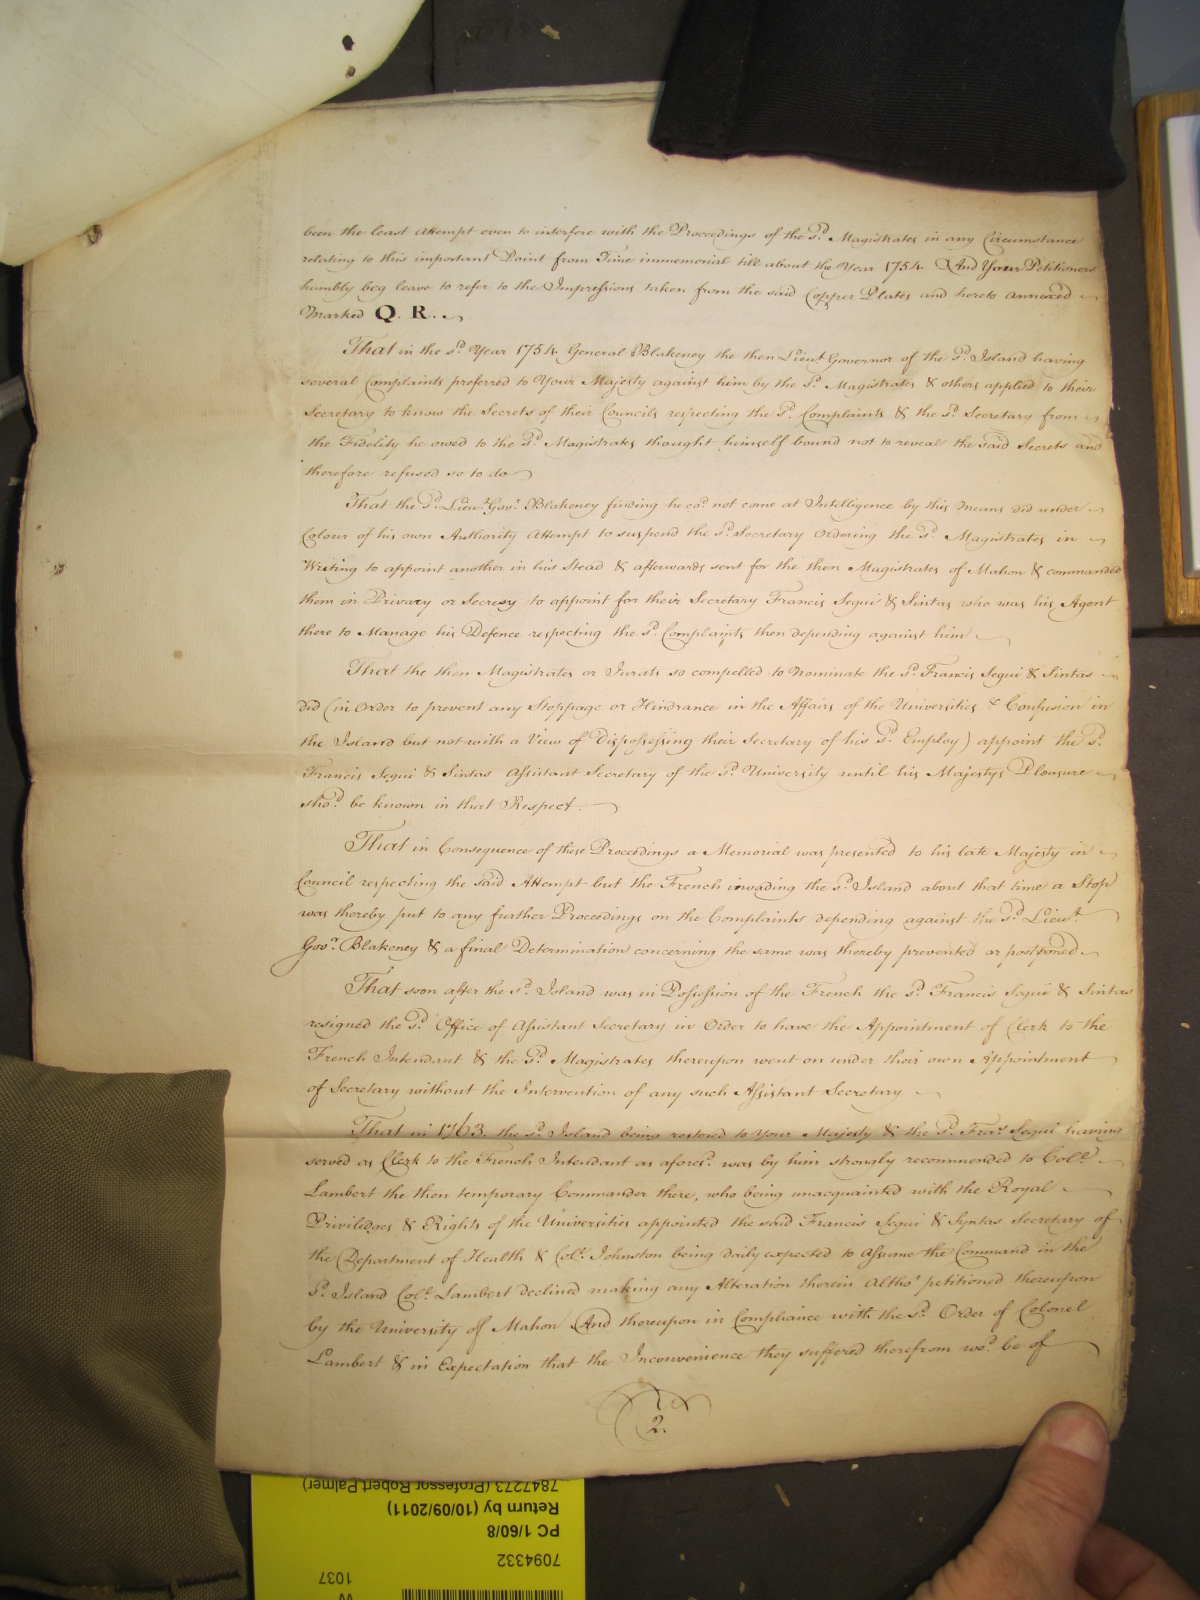 been the least Attempt even to interfere with the Proceedings of the Sd. Magistrates in any Circumstance
relating to this important Point from Time immemorial till about the Year 1754 And Your Petitioners
humbly beg leave to refer to the Impressions taken from the said Copper Plates and hereto annexed
Marked Q. R.
That in the sd. Year 1754 General Blakeney the then Lieut Governor of the Sd. Island having
several Complaints preferred to Your Majesty against him by the Sd. Magistrates & others applied to their
Secretary to know the Secrets of their Councils respecting the Sd. Complaints & the Sd. Secretary from
the Fidelity he owed to the Sd. Magistrates thought himself bound not to reveal the said Secrets and
therefore refused so to do
That the Sd. Lieut. Govr. Blakeney finding he cod. not come at Intelligence by this Means did under
Colour of his own Authority Attempt to suspend the Sd. Secretary Ordering the Sd. Magistrates in
Writing to appoint another in his Stead & afterwards sent for the then Magistrates of Mahon & commanded
them in Privacy or Secresy to appoint for their Secretary Francis Segui & Sintas who was his Agent
there to Manage his Defence respecting the sd. Complaints then depending against him
That the then Magistrates or Jurats so compelled to Nominate the Sd. Francis Segui & Sintas
did (in Order to prevent any Stoppage or Hindrance in the Affairs of the Universities & Confusion in
the Island but not with a View of Dispossessing their Secretary of his Sd. Employ) appoint the Sd.
Francis Segui & Sintas Assistant Secretary of the Sd. University until his Majestys Pleasure
shod. be known in that Respect.
That in Consequence of these Proceedings a Memorial was presented to his late Majesty in
Council respecting the said Attempt but the French invading the Sd. Island about that time a Stop
was thereby put to any further Proceedings on the Complaints depending against the Sd. Lieut.
Govr. Blakeney & a final Determination concerning the same was thereby prevented or postponed
That soon after the sd. Island was in Possession of the French the sd. Francis Segui & Sintas
resigned the Sd. Office of Assistant Secretary in Order to have the Appointment of Clerk to the
French Intendant & the Sd. Magistrates thereupon went on under their own Appointment
of Secretary without the Intervention of any such Assistant Secretary
That in 1763 the sd. Island being restored to Your Majesty & the Sd. Fras. Segui having
served as Clerk to the French Intendant as aforesd. was by him strongly recommended to Coll.
Lambert the then temporary Commander there, who being unacquainted with the Royal
Priviledges & Rights of the Universities appointed the said Francis Segui & Syntas Secretary of
the Department of Health & Coll. Johnston being daily expected to Assume the Command in the
Sd. Island Coll. Lambert declined making any Alteration therein Altho' petitioned thereupon
by the University of Mahon And thereupon in Compliance with the Sd. Order of Colonel
Lambert & in Expectation that the Inconvenience they suffered therefrom wod. be of
2.
7847273 (Professor Robert Palmer)
Return by (10/09/2011)
PC 1/60/8
7094332
1037